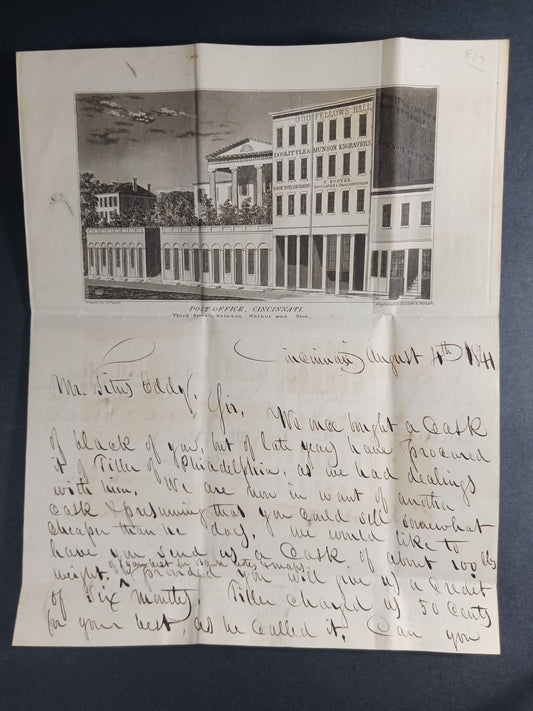 527
ODD FELLOWS HALL
DOOLITTLE & MUNSON ENGRAVERS
BANK NOTE ENGRAVERS
C. FOSTER
POST OFFICE, CINCINNATI.
Third Street, between Walnut and Vine.
Cincinnati August 4th 1841
Mr. Titus Eddy, Sir, We once bought a Cask
of black of you, but of late years have procured
it of Tiller of Philadelphia, as we had dealings
with him. We are now in want of another
cask & presuming that you could sell somewhat
cheaper than he does, we would like to
have you send us a Cask of about 100 lbs
of your best for Bank Notes & maps
weight. ^ Provided you will give us a Credit
of Six months. Tiller charged us 50 Cents
for your best, as he called it. Can you